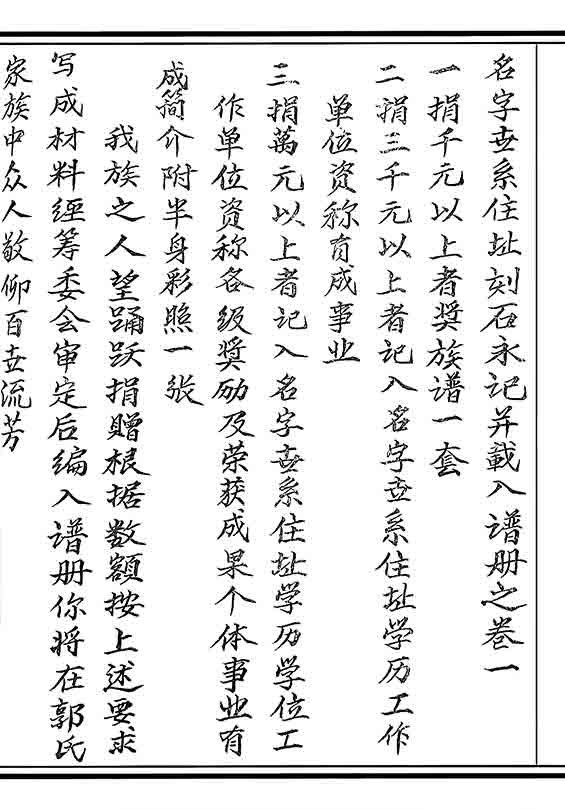 名字世系住址刻石永记并載入谱册之卷一
一捐千元以上者奖族谱一套
二捐三千元以上者记入名字世系住址学历工作
单位资称有成事业
三捐萬元以上者记入名字世系住址学历学位工
作单位资称各级奖励及荣获成果个体事业有
成简介附半身彩照一张
我族之人望踊跃捐赠根据数额按上述要求
写成材料经筹委会审定后编入谱册你将在郭氏
家族中众人敬仰百世流芳